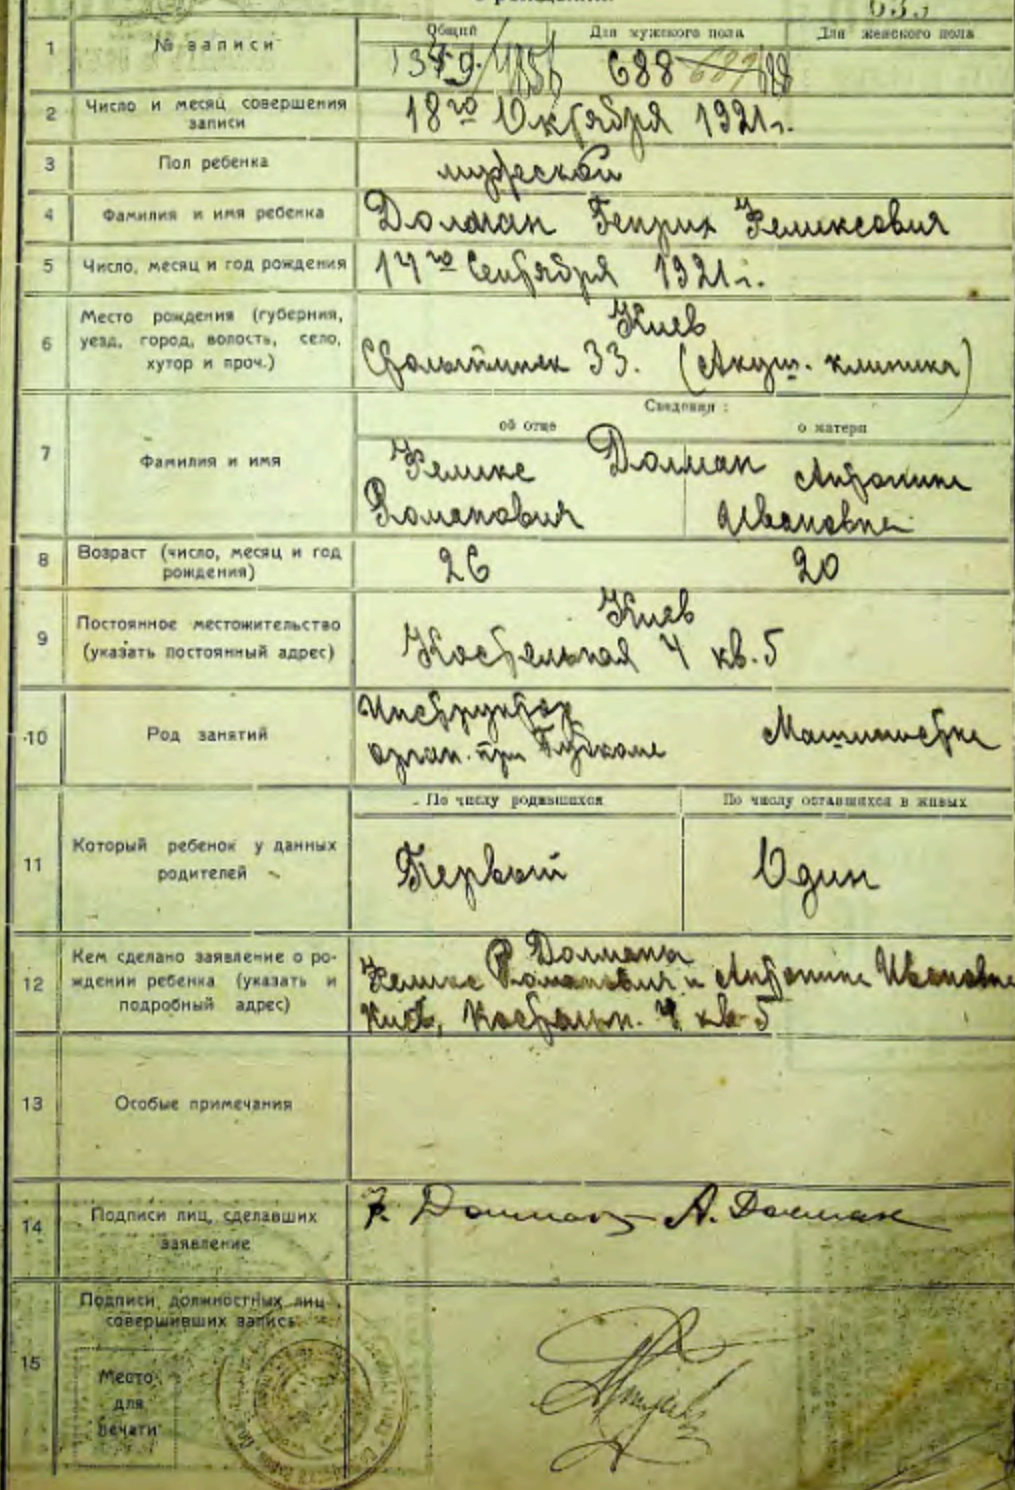 № записи
Общий
Для мужского пола
Для женского пола
688
2
Число и месяц совершения
записи
18го Октября 1921г.
3
Пол ребенка
мужской
4
Фамилия и имя ребенка
Долман Генрих Феликсович
5
Число, месяц и год рождения
14го Сентября 1921г.
6
Место рождения (губерния,
уезд, город, волость, село,
хутор и проч.)
Киев
33. (Акуш. клиника)
7
Фамилия и имя
Сведения:
об отце
о матери
Феликс Долман Антонина
Романович Ивановна
8
Возраст (число, месяц и год
рождения)
26
20
9
Постоянное местожительство
(указать постоянный адрес)
Киев
Костельная 4 кв. 5
10
Род занятий
Инструктор
орган. при Губкоме
Машинистка
11
Который ребенок у данных
родителей
По числу родившихся
По числу оставшихся в живых
Первый
Один
12
Кем сделано заявление о ро-
ждении ребенка (указать и
подробный адрес)
Долманы
Феликс Романович и Антонина Ивановна
Киев, Костельн. 4 кв 5
13
Особые примечания
14
Подписи лиц, сделавших
заявление
Ф. Долман А. Долман
15
Подписи должностных лиц,
совершивших запись
Место
для
печати